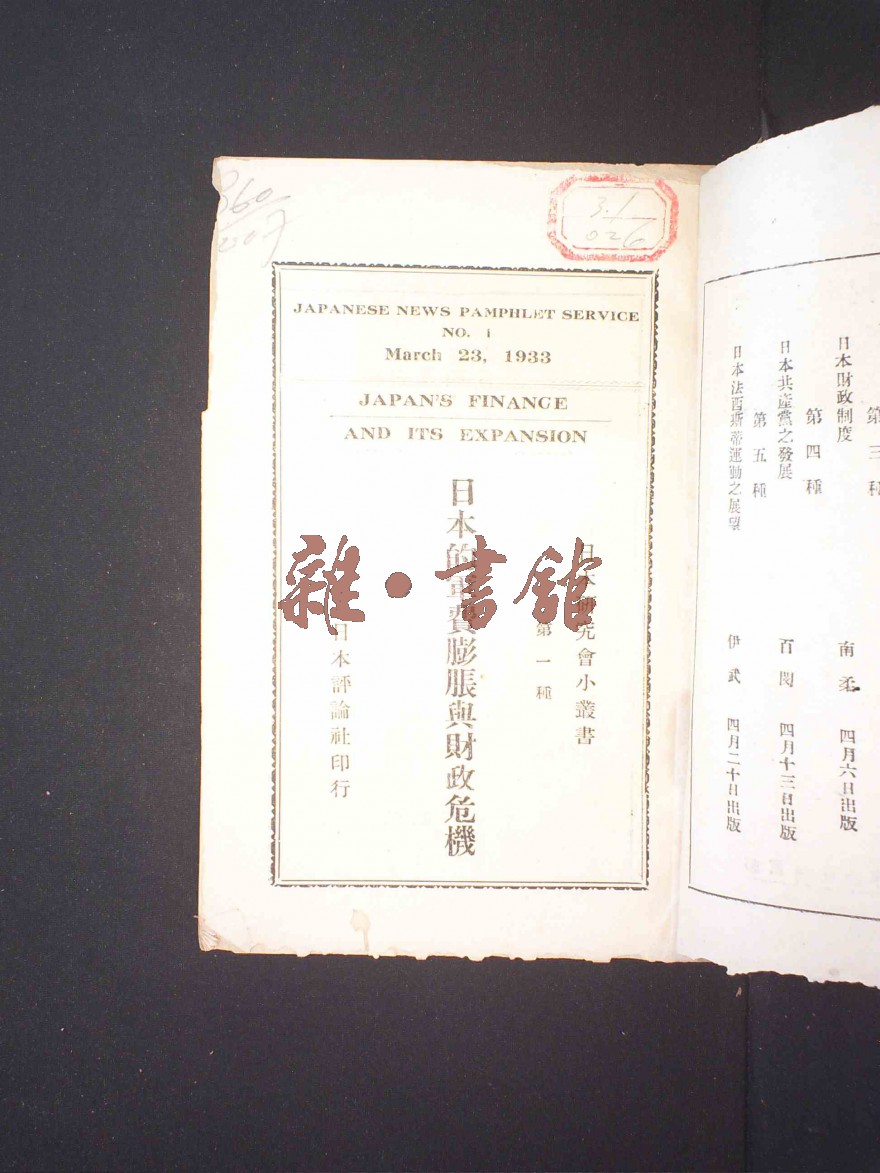 360
3.1
026
JAPANESE NEWS PAMPHLET SERVICE
NO. 1
March 23, 1933
JAPAN'S FINANCE
AND ITS EXPANSION
日本研究會小叢書
第一種
日本的軍費膨脹與財政危機
日本評論社印行
雜·書館
第三種
日本財政制度 南柔 四月六日出版
第四種
日本共產黨之發展 百閔 四月十三日出版
第五種
日本法西斯蒂運動之展望 伊武 四月二十日出版